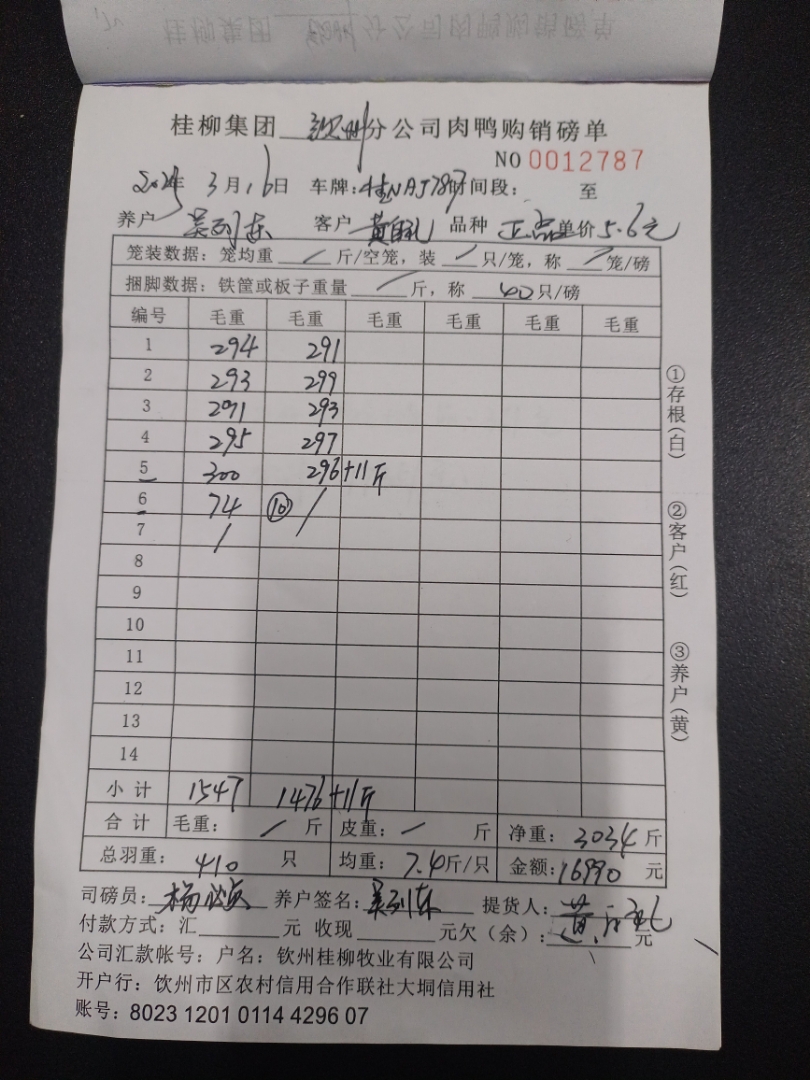 桂柳集团 钦州 分公司肉鸭购销磅单
NO 0012787
2024年 3月16日 车牌:桂NAJ787时间段: 至
养户 吴列东 客户 黄 礼 品种 正品 单价5.6元
笼装数据:笼均重 / 斤/空笼,装 / 只/笼,称 / 笼/磅
捆脚数据:铁筐或板子重量 / 斤,称 40只/磅
编号 毛重 毛重 毛重 毛重 毛重 毛重
1 294 291
2 293 299
3 291 293
4 295 297
5 300 296+11斤
6 74 ⑩ /
7 /
8
9
10
11
12
13
14
小计 1547 1476+11斤
合计 毛重: / 斤 皮重: / 斤 净重: 3034斤
总羽重: 410 只 均重: 7.4斤/只 金额:16990 元
司磅员: 杨 养户签名: 吴列东 提货人: 黄 礼
付款方式:汇 元 收现 元欠(余): 元
公司汇款帐号:户名:钦州桂柳牧业有限公司
开户行:饮州市区农村信用合作联社大垌信用社
账号:8023 1201 0114 4296 07
①存根(白)
②客户(红)
③养户(黄)